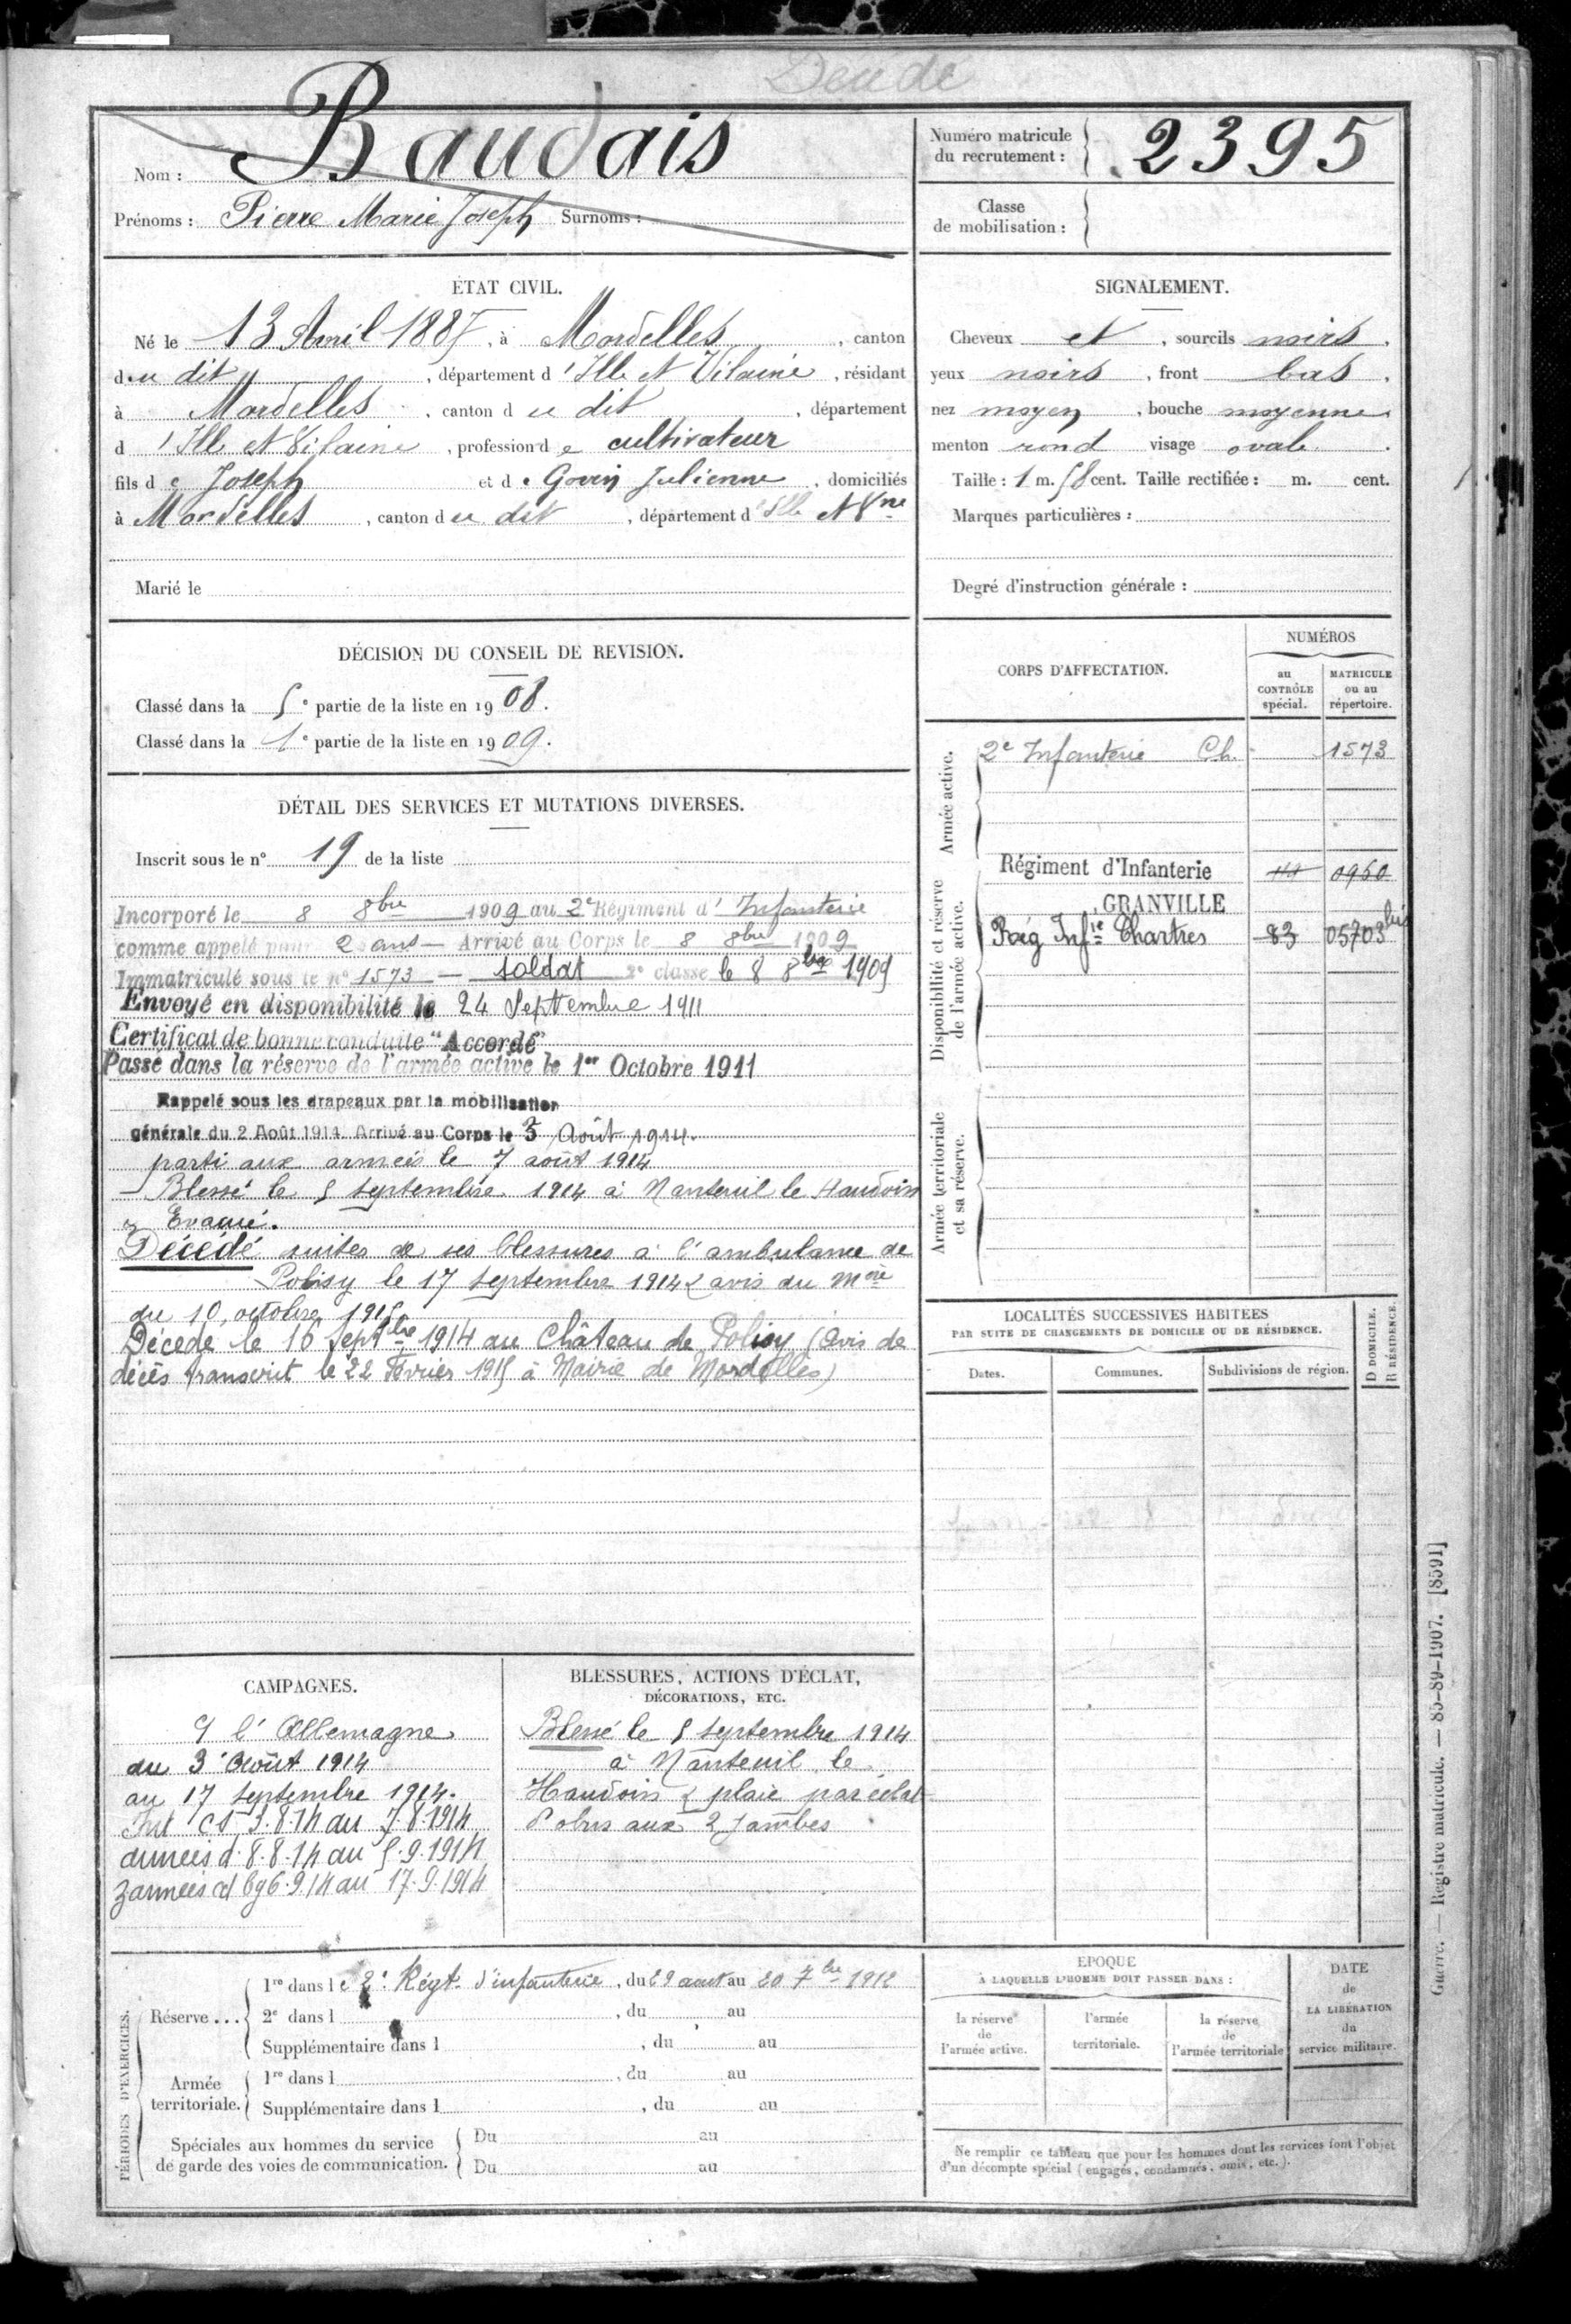 Décédé
Nom : Baudais
Prénoms : Pierre Marie Joseph Surnoms :
Numéro matricule
du recrutement : 2395
Classe
de mobilisation :
ÉTAT CIVIL.
Né le 13 Avril 1887, à Mordelles, canton
du dit, département d'Ille et Vilaine, résidant
à Mordelles, canton du dit, département
d'Ille et Vilaine, profession de cultivateur
fils de Joseph et de Govin Julienne, domiciliés
à Mordelles, canton du dit, département d'Ille et Vne
Marié le
SIGNALEMENT.
Cheveux et, sourcils noirs,
yeux noirs, front bas,
nez moyen, bouche moyenne
menton rond visage ovale.
Taille : 1 m. 58 cent. Taille rectifiée : m. cent.
Marques particulières :
Degré d'instruction générale :
DÉCISION DU CONSEIL DE REVISION.
Classé dans la 5e partie de la liste en 1908.
Classé dans la 1e partie de la liste en 1909.
DÉTAIL DES SERVICES ET MUTATIONS DIVERSES.
Inscrit sous le no 19 de la liste
Incorporé le 8 8bre 1909 au 2e Régiment d'Infanterie
comme appelé pour 2 ans - Arrivé au Corps le 8 8bre 1909
Immatriculé sous le no 1573 - soldat 2e classe le 8 8bre 1909
Envoyé en disponibilité le 24 Septembre 1911
Certificat de bonne conduite "Accordé"
Passé dans la réserve de l'armée active le 1er Octobre 1911
Rappelé sous les drapeaux par la mobilisation
générale du 2 Août 1914. Arrivé au Corps le 3 Août 1914.
parti aux armées le 7 août 1914
- Blessé le 5 septembre 1914 à Nanteuil le Haudoin
Evacué.
Décédé suites de ses blessures à l'ambulance de
Polisy le 17 septembre 1914 avis du Mère
du 10 octobre 1915
Décédé le 16 Septbre 1914 au Château de Polisy (Avis de
décès transcrit le 22 Février 1915 à Mairie de Mordelles)
CORPS D'AFFECTATION.
NUMÉROS
au
CONTRÔLE
spécial.
MATRICULE
ou au
répertoire.
Armée active.
2e Infanterie Ch. 1573
Disponibilité et réserve
de l'armée active.
Régiment d'Infanterie 0960
GRANVILLE
Rég Infie Chartres 83 05703 bis
Armée territoriale
et sa réserve.
LOCALITÉS SUCCESSIVES HABITÉES
PAR SUITE DE CHANGEMENTS DE DOMICILE OU DE RÉSIDENCE.
D DOMICILE.
R RÉSIDENCE.
Dates. Communes. Subdivisions de région.
CAMPAGNES.
C l'Allemagne
du 3 Août 1914
au 17 septembre 1914.
Int cs 3.8.14 au 7.8.1914
armées d. 8.8.14 au 5.9.1914
armées cd bg 6.9.14 au 17.9.1914
BLESSURES, ACTIONS D'ÉCLAT,
DÉCORATIONS, ETC.
Blessé le 5 septembre 1914
à Nanteuil le
Haudoin plaie par éclat
d'obus aux 2 jambes
PÉRIODES D'EXERCICES.
Réserve...
1re dans le 2e Régt. d'infanterie, du 29 aout au 20 7bre 1912
2e dans l , du au
Supplémentaire dans l , du au
Armée
territoriale.
1re dans l , du au
Supplémentaire dans l , du au
Spéciales aux hommes du service
de garde des voies de communication.
Du au
Du au
EPOQUE
À LAQUELLE L'HOMME DOIT PASSER DANS :
la réserve
de
l'armée active.
l'armée
territoriale.
la réserve
de
l'armée territoriale
DATE
de
LA LIBÉRATION
du
service militaire.
Ne remplir ce tableau que pour les hommes dont les services font l'objet
d'un décompte spécial (engagés, condamnés, omis, etc.).
Guerre. — Registre matricule. — 85-89-1907. [8591]